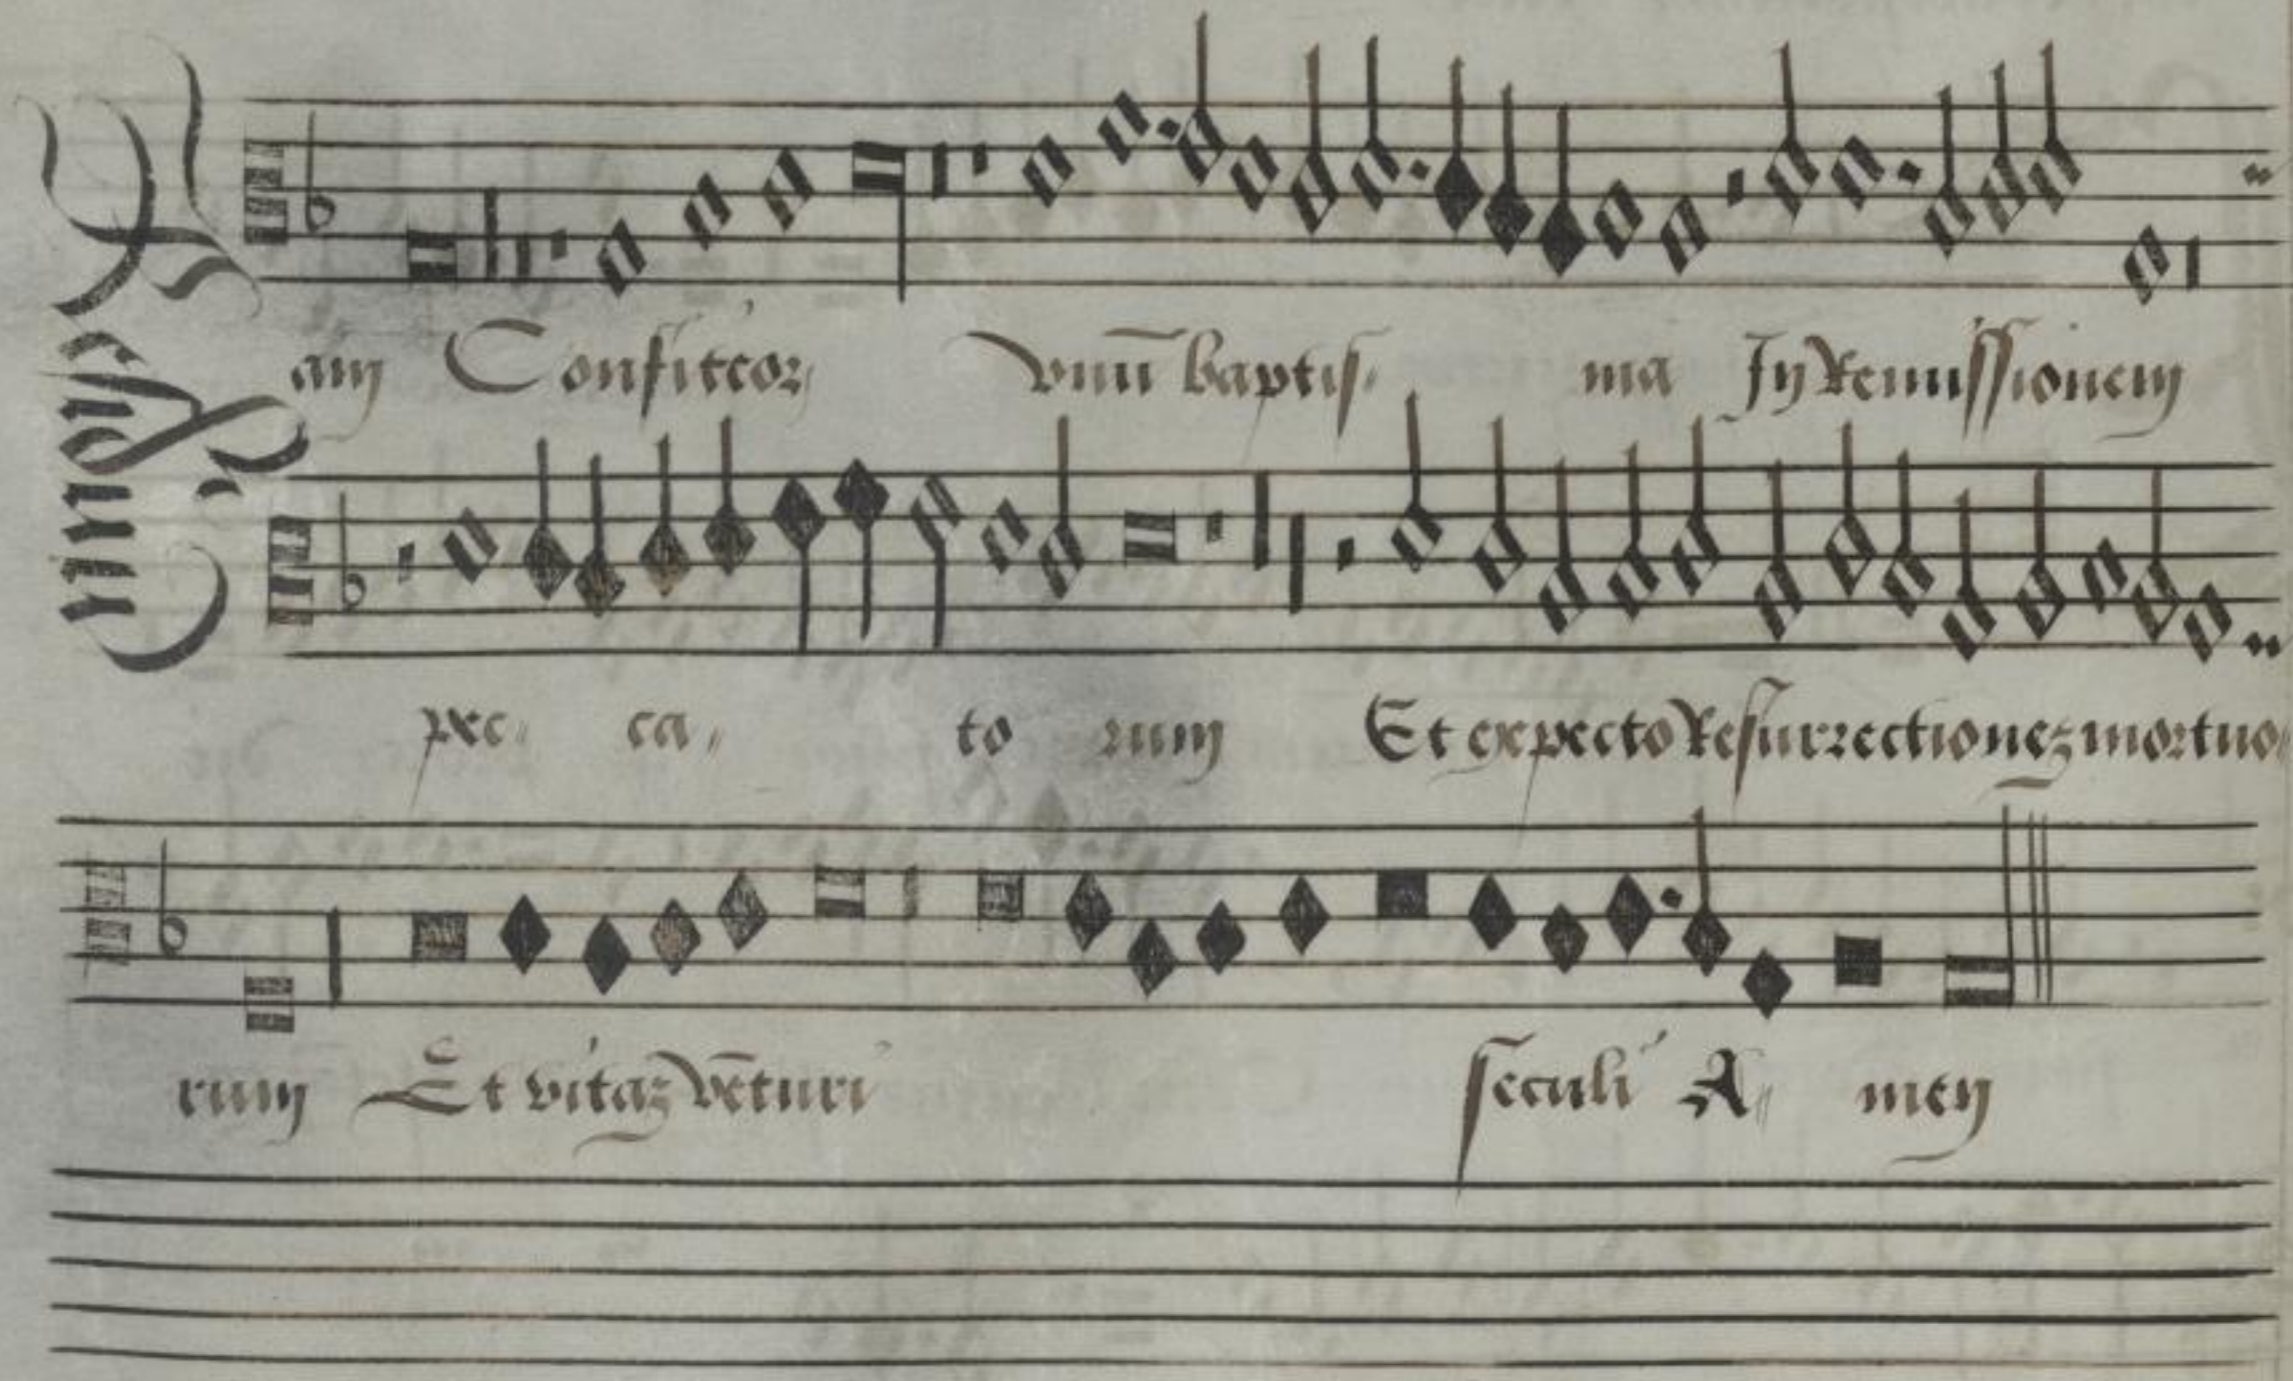 Tenor
am Confiteor vnū baptis ma In Remissionem
pec ca to rum Et expecto Resurrectionez mortuo
rum Et vitaz vēturi seculi A men